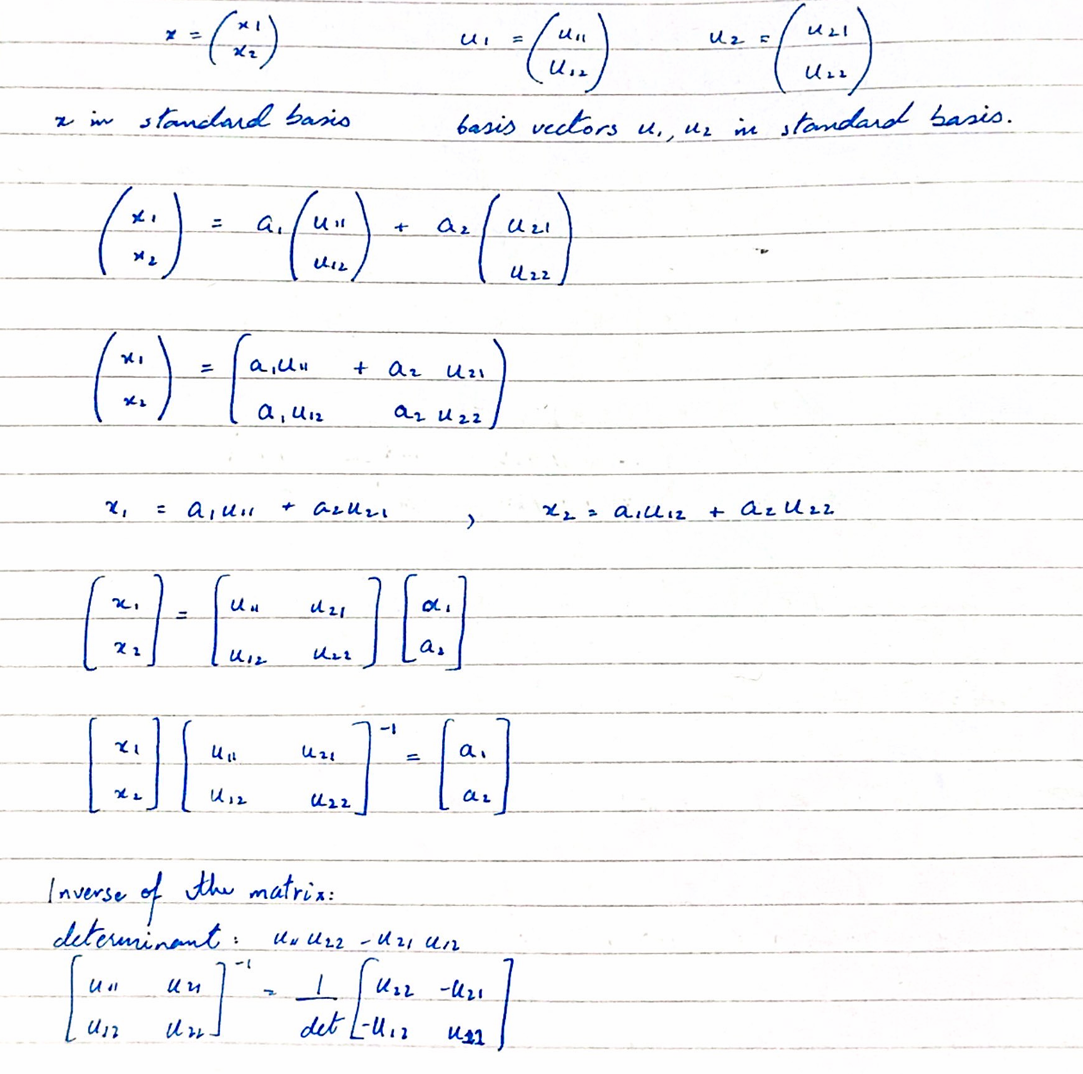 x = (x1 x2) u1 = (u11 u12) u2 = (u21 u22)
x in standard basis basis vectors u1, u2 in standard basis.
(x1 x2) = a1 (u11 u12) + a2 (u21 u22)
(x1 x2) = (a1u11 + a2 u21
a1u12 a2 u22)
x1 = a1u11 + a2u21 , x2 = a1u12 + a2u22
[x1 x2] = [u11 u21
u12 u22] [a1 a2]
[x1 x2] [u11 u21
u12 u22]^-1 = [a1 a2]
Inverse of the matrix:
determinant: u11u22 - u21 u12
[u11 u21
u12 u22]^-1 = 1/det [u22 -u21
-u12]